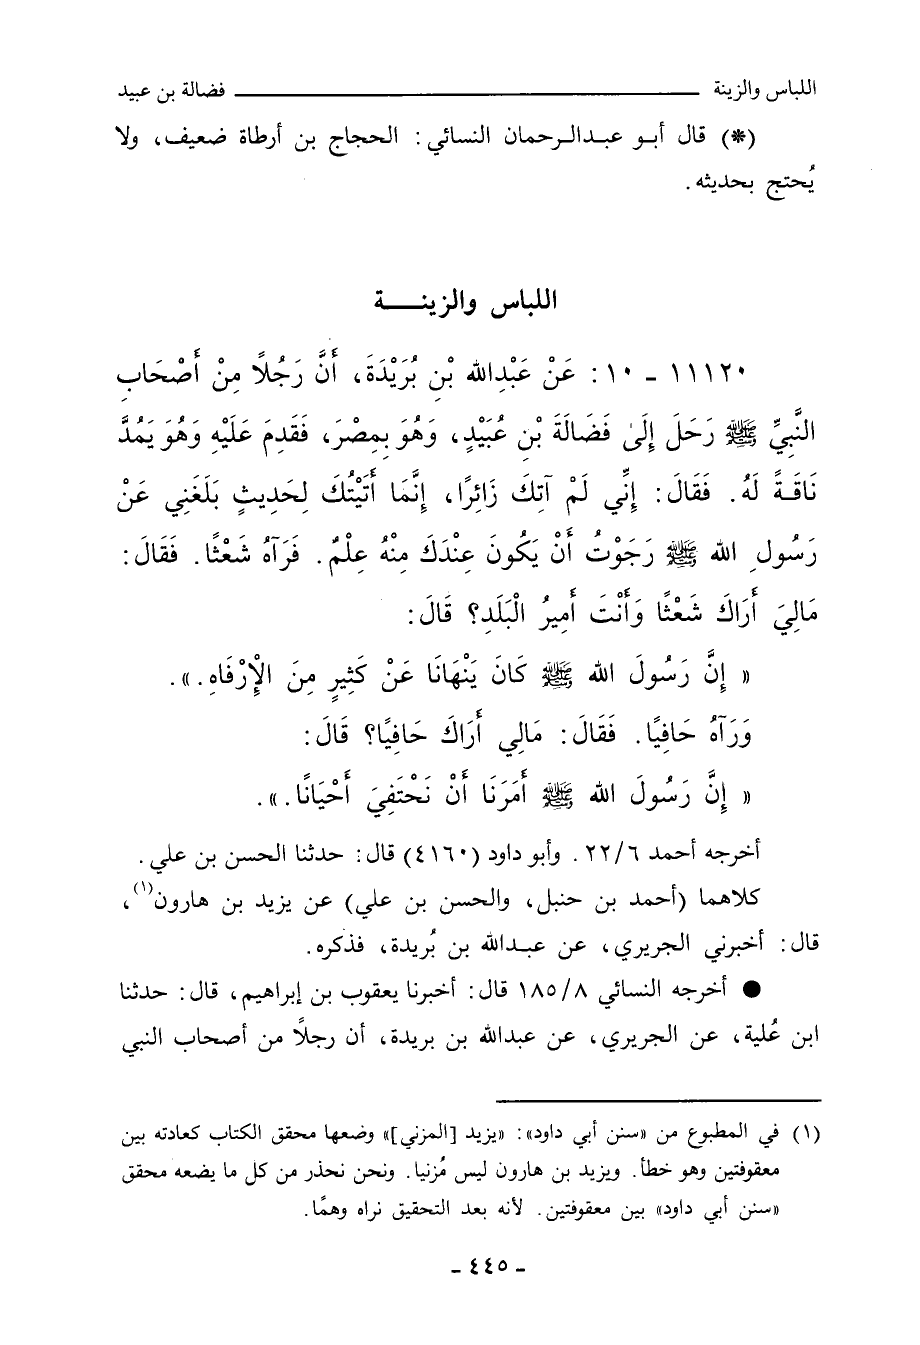 اللباس والزينة ــــــــــ فضالة بن عبيد
(*) قال أبو عبدالرحمان النسائي: الحجاج بن أرطاة ضعيف، ولا
يُحتج بحديثه.
اللباس والزينة
١١١٢٠ - ١٠: عَنْ عَبْدِالله بْنِ بُرَيْدَةَ، أَنَّ رَجُلاً مِنْ أَصْحَابِ
النَّبِيِّ ﷺ رَحَلَ إِلَىٰ فَضَالَةَ بْنِ عُبَيْدٍ، وَهُوَ بِمِصْرَ، فَقَدِمَ عَلَيْهِ وَهُوَ يَمُدُّ
نَاقَةً لَهُ. فَقَالَ: إِنِّي لَمْ آتِكَ زَائِرًا، إِنَّمَا أَتَيْتُكَ لِحَدِيثٍ بَلَغَنِي عَنْ
رَسُولِ الله ﷺ رَجَوْتُ أَنْ يَكُونَ عِنْدَكَ مِنْهُ عِلْمٌ. فَرَآهُ شَعْثًا. فَقَالَ:
مَالِيَ أَرَاكَ شَعْثًا وَأَنْتَ أَمِيرُ الْبَلَدِ؟ قَالَ:
« إِنَّ رَسُولَ الله ﷺ كَانَ يَنْهَانَا عَنْ كَثِيرٍ مِنَ الْإِرْفَاهِ.».
وَرَآهُ حَافِيًا. فَقَالَ: مَالِي أَرَاكَ حَافِيًا؟ قَالَ:
« إِنَّ رَسُولَ الله ﷺ أَمَرَنَا أَنْ نَحْتَفِيَ أَحْيَانًا.».
أخرجه أحمد ٢٢/٦. وأبو داود (٤١٦٠) قال: حدثنا الحسن بن علي.
كلاهما (أحمد بن حنبل، والحسن بن علي) عن يزيد بن هارون(١)،
قال: أخبرني الجريري، عن عبدالله بن بُريدة، فذكره.
● أخرجه النسائي ١٨٥/٨ قال: أخبرنا يعقوب بن إبراهيم، قال: حدثنا
ابن عُلية، عن الجريري، عن عبدالله بن بريدة، أن رجلاً من أصحاب النبي
(١) في المطبوع من «سنن أبي داود»: «يزيد [المزني]» وضعها محقق الكتاب كعادته بين
معقوفتين وهو خطأ. ويزيد بن هارون ليس مُزنيا. ونحن نحذر من كل ما يضعه محقق
«سنن أبي داود» بين معقوفتين. لأنه بعد التحقيق نراه وهمًا.
- ٤٤٥ -